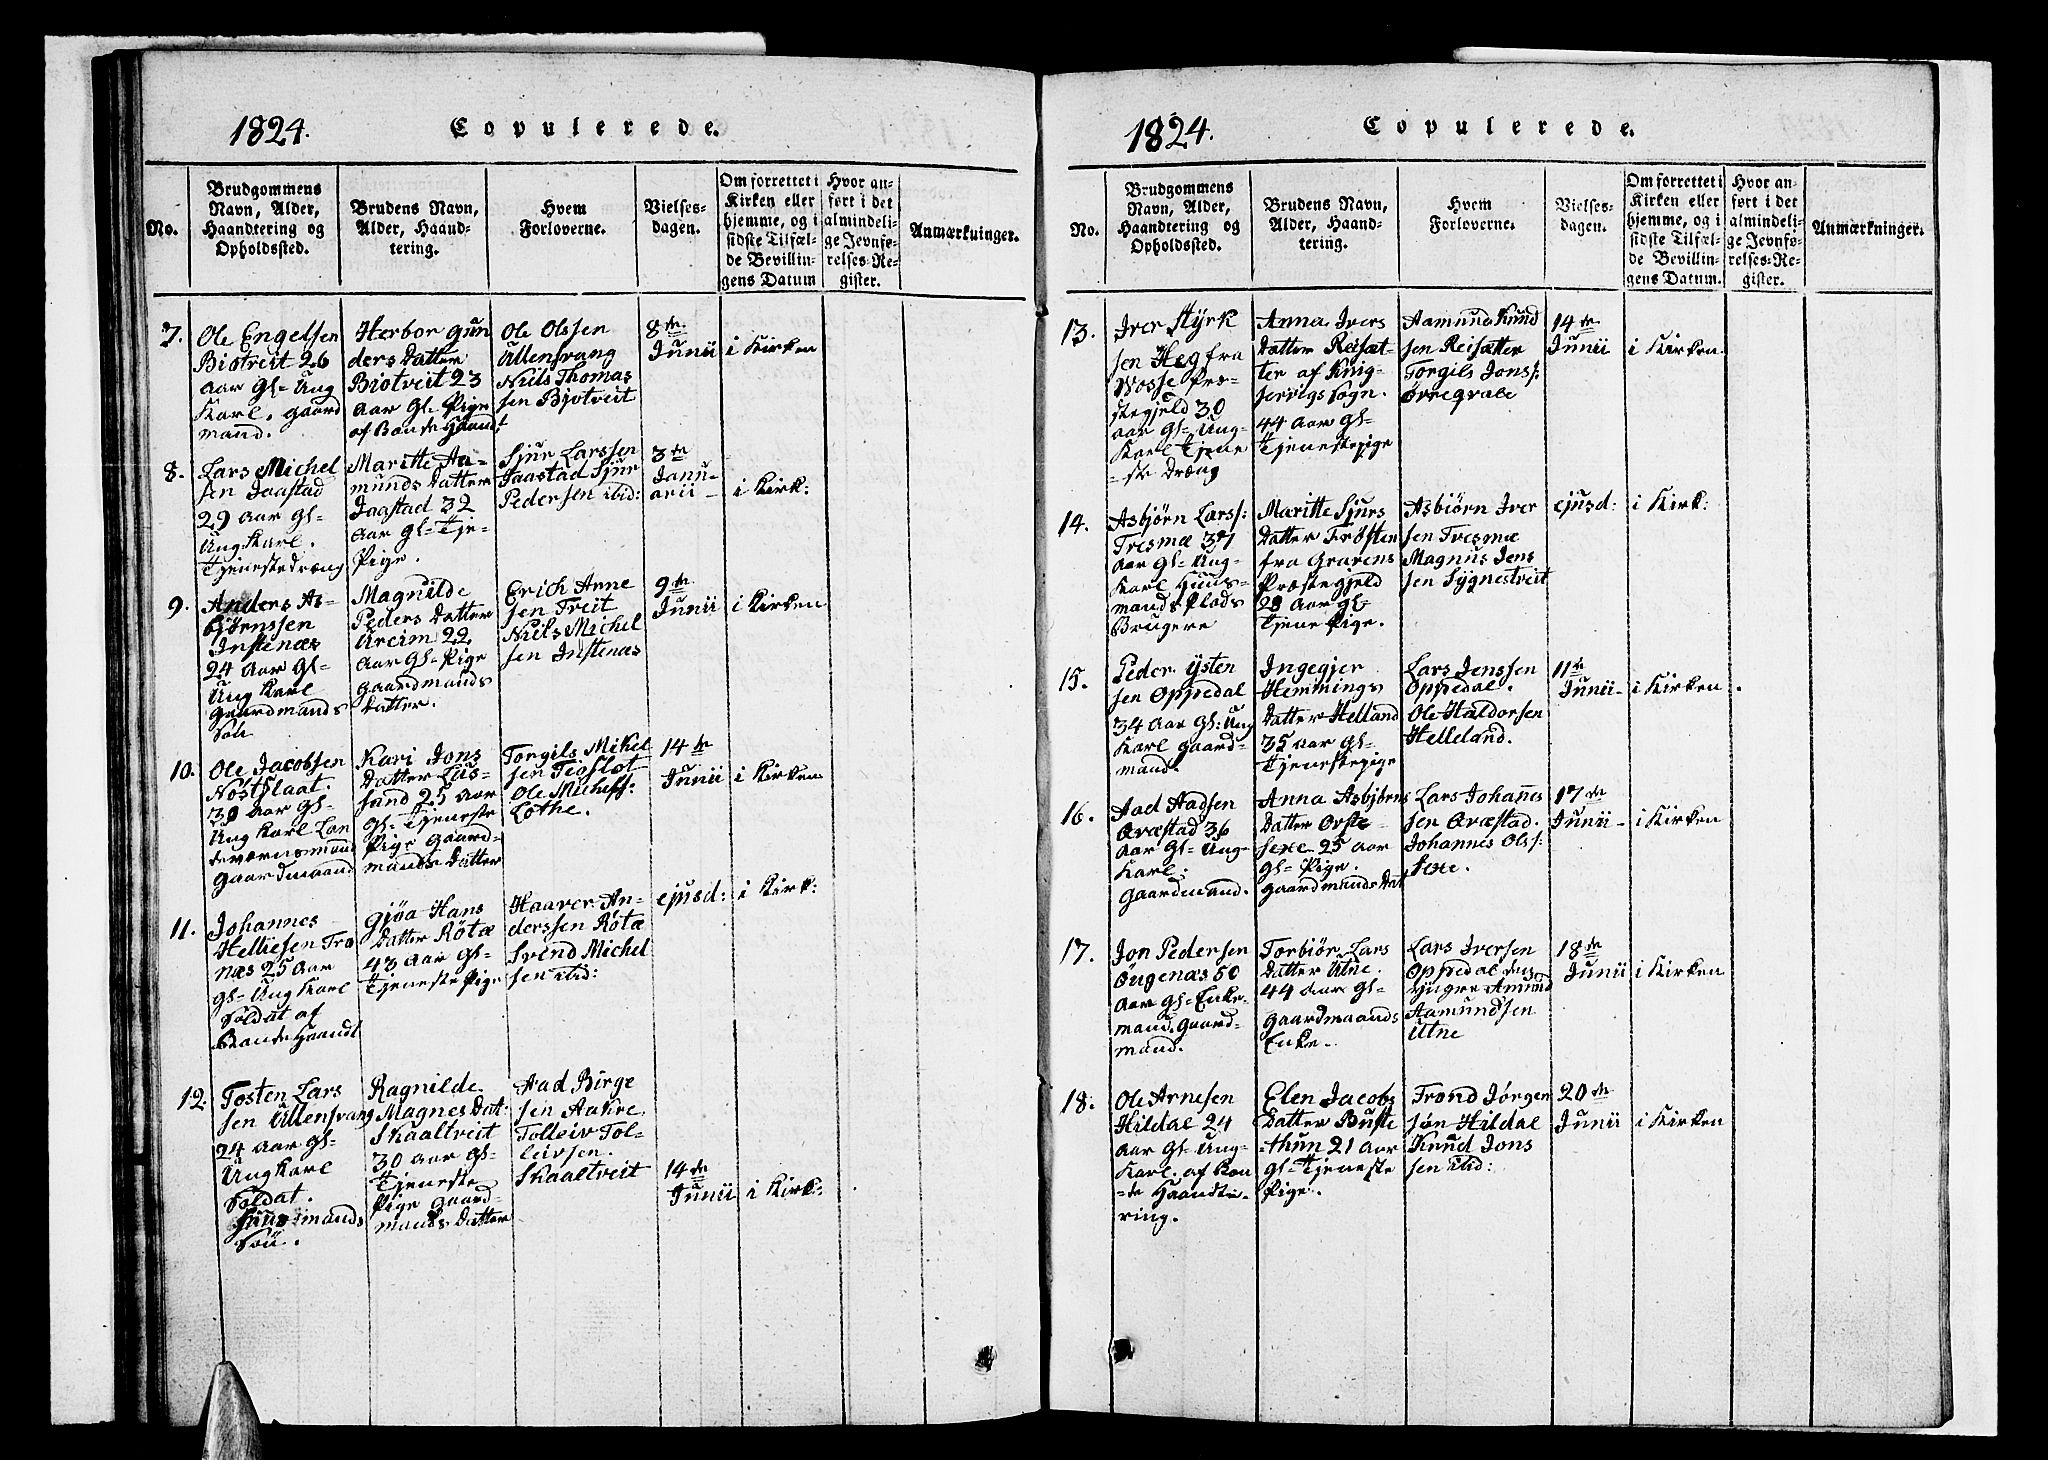 1824. Copulerede.
No.
Brudgommens
Navn, Alder,
Haandtering og
Opholdssted.
Brudens Navn,
Alder, Haand-
tering.
Hvem
Forloverne.
Vielses-
dagen.
Om forrettet i
Kirken eller
hjemme, og i
sidste Tilfæl-
de Bevillin-
gens Datum
Hvor an-
ført i det
almindeli-
ge Jevnfø-
relses-Re-
gister.
Anmærkninger.
7.
Ole Engelsen
Biotveit 26
aar Gl- Ung
Karl. gaard
mand.
Herbor Gun
ders Datter
Biotveit 23
aar Gl- Pige
af Bonde Haandt
Ole Olsen
Ullensvang
Niels Thomas
sen Bjotveit
8de
Junii
i Kirken
8.
Lars Michel
sen Jaastad
29 aar Gl-
Ung Karl.
Tjenestedræng
Maritte Aa-
munds Datter
Jaastad 32
aar Gl- Tje-
Pige.
Sjur Larssen
Jaastad Sjur
Pedersen ibid:
3de
Janu-
arii -
i Kirk:
9.
Anders As-
bjørnssen
Instenæs
24 aar Gl-
Ung Karl
Gaardmands
Søn
Magnilde
Peders Datter
Ureim 22
aar Gl- Pige
Gaardmands
Datter.
Erich Arne
sen Freit
Niels Michel
sen Instenæs
9de
Junii
i Kirken
10.
Ole Jacobsen
Nostflaat.
30 aar Gl-
Ung Karl Lan
deværnsmand
Gaardmaand
Kari Jons
Datter Lus-
sand 25 aar
Gl- Tjeneste
Pige Gaard-
mands Datter
Torgils Mikel
sen Tioflot
Ole Michels:
Lothe.
14de
Junii
i Kirken
11.
Johannes
Helliesen Tro
næs 25 aar
Gl- Ung Karl
Soldat af
Bonde Haandt
Gjøa Hans
Datter Røtæ
43 aar Gl-
Tjeneste Pige
Haaver An-
derssen Røtæ
Svend Michel
sen ibid:
ejusd:
i Kirk:
12.
Tosten Lars
sen Ullensvang
24 aar Gl-
Ung Karl
Soldat.
Huusmands
Søn.
Ragnilde
Magnes Dat:
Skaaltveit
30 aar Gl-
Tjeneste
Pige Gaard-
mands Datter
Aad Birge
sen Aakre
Tolleiv Tol-
leivsen.
Skaaltveit
14de
Junii
i Kirk:
1824. Copulerede.
No.
Brudgommens
Navn, Alder,
Haandtering og
Opholdssted.
Brudens Navn,
Alder, Haand-
tering.
Hvem
Forloverne.
Vielses-
dagen.
Om forrettet i
Kirken eller
hjemme, og i
sidste Tilfæl-
de Bevillin-
gens Datum.
Hvor an-
ført i det
almindeli-
ge Jevnfø-
relses-Re-
gister.
Anmærkninger.
13.
Iver Styrk
sen Heg fra
Vosse Præ-
stegjeld 30
aar Gl- Ung-
Karl Tjene
-ste Dræng
Anna Ivers
Datter Reisæt-
ter af King-
servigs Sogn.
44 aar Gl-
Tjenestepige
Aamund Knud
sen Reisætter
Torgils Jons:
Øvregrave
14de
Junii
i Kirken
14.
Asbjørn Larss:
Tresmæ 37
aar Gl- Ung-
Karl Huus-
mands Plads
Brugere
Maritte Sjurs
Datter Trøsten
fra Gravens
Præstegjeld
29 aar Gl-
Tjene Pige.
Asbiørn Iver
sen Tresmæ
Magnus Jens
sen Sygnestveit
ejusd:
i Kirk:
15.
Peder Ysten
sen Oppedal
34 aar Gl: Ung
Karl Gaard-
mand.
Ingegjer
Hemmings
Datter Helland
35 aar Gl-
Tjenestepige
Lars Jenssen
Oppedal.
Ole Haldorsen
Helleland.
11te
Junii -
i Kirken
16.
Aad Aadsen
Qvæstad 36
aar Gl- Ung-
Karl:
Gaardmand.
Anna Asbjørns
Datter Ovste-
sexe 25 aar
Gl- Pige.
Gaardmands Dat
Lars Johannes
sen Qvæstad.
Johannes Ols:
Sexe.
17de
Junii -
i Kirken
17.
Jon Pedersen
Øugenæs 50
aar Gl- Enke-
mand. Gaard-
mand.
Torbiør Lars
Datter Utne.
44 aar Gl-
Gaardmaands
Enke.
Lars Iversen
Oppedal den
yngre Amund
Aamundsen
Utne
18de
Junii
i Kirken
18.
Ole Arnesen
Hildal 24
aar Gl- Ung-
Karl. af Bon
-de Haandte-
ring.
Elen Jacobs
Datter Buste
-thun 21 aar
Gl- Tjeneste
Pige.
Trond Jørgen
søn Hildal
Knud Jons
sen ibid:
20de
Junii
i Kirken